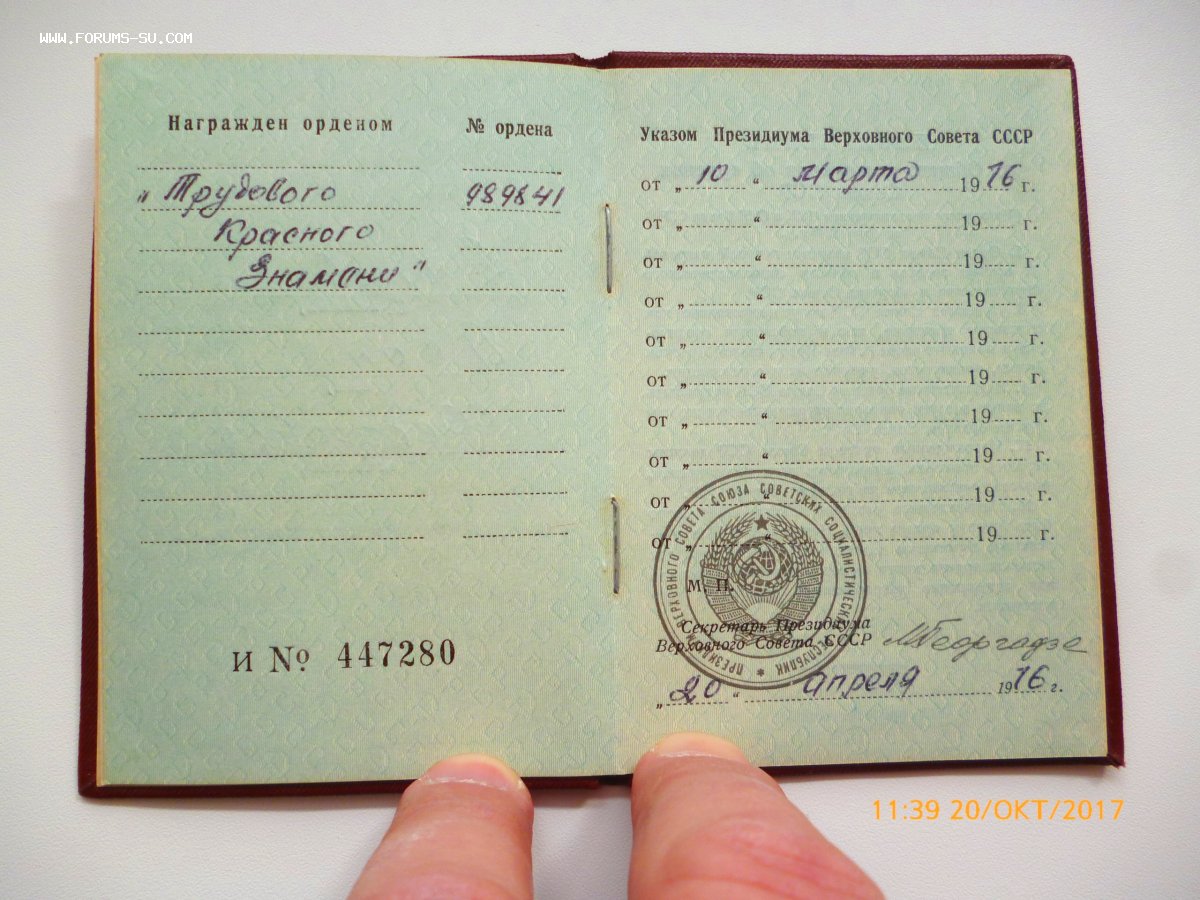 WWW.FORUMS-SU.COM
Награжден орденом № ордена
„Трудового 989841
Красного
Знамени"
И № 447280
Указом Президиума Верховного Совета СССР
от „ 10 “ марта 1976 г.
от „ “ 19 г.
от „ “ 19 г.
от „ “ 19 г.
от „ “ 19 г.
от „ “ 19 г.
от „ “ 19 г.
от „ “ 19 г.
от „ “ 19 г.
от „ “ 19 г.
ПРЕЗИДИУМ ВЕРХОВНОГО СОВЕТА СОЮЗА СОВЕТСКИХ СОЦИАЛИСТИЧЕСКИХ РЕСПУБЛИК
М. П.
Секретарь Президиума
Верховного Совета СССР МГеоргадзе
„ 20 “ апреля 1976 г.
11:39 20/ОКТ/2017